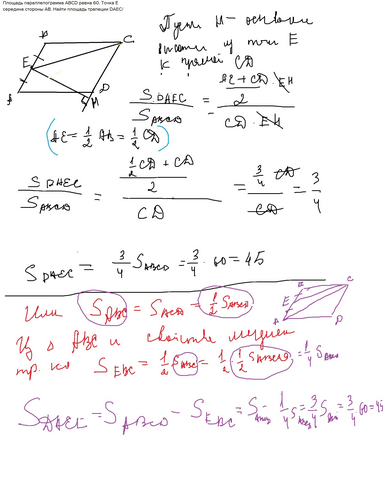 Площадь параллелограмма ABCD равна 60. Точка E
середина стороны AB. Найти площадь трапеции DAEC/
B C
E
A D
H
Пусть H - основание
высоты из точки E
к прямой CD
S DAEC / S ABCD = ((AE + CD)/2 · EH) / (CD · EH)
(AE = 1/2 AB = 1/2 CD)
S DAEC / S ABCD = ((1/2 CD + CD)/2) / CD = (3/4 CD) / CD = 3/4
S DAEC = 3/4 S ABCD = 3/4 · 60 = 45
Или S ABC = S ACD = 1/2 S ABCD
Из Δ ABC и свойства медианы
тр. ка S EBC = 1/2 S ABC = 1/2 · 1/2 S ABCD = 1/4 S ABCD
B C
E
A D
S DAEC = S ABCD - S EBC = S ABCD - 1/4 S ABCD = 3/4 S ABCD = 3/4 · 60 = 45